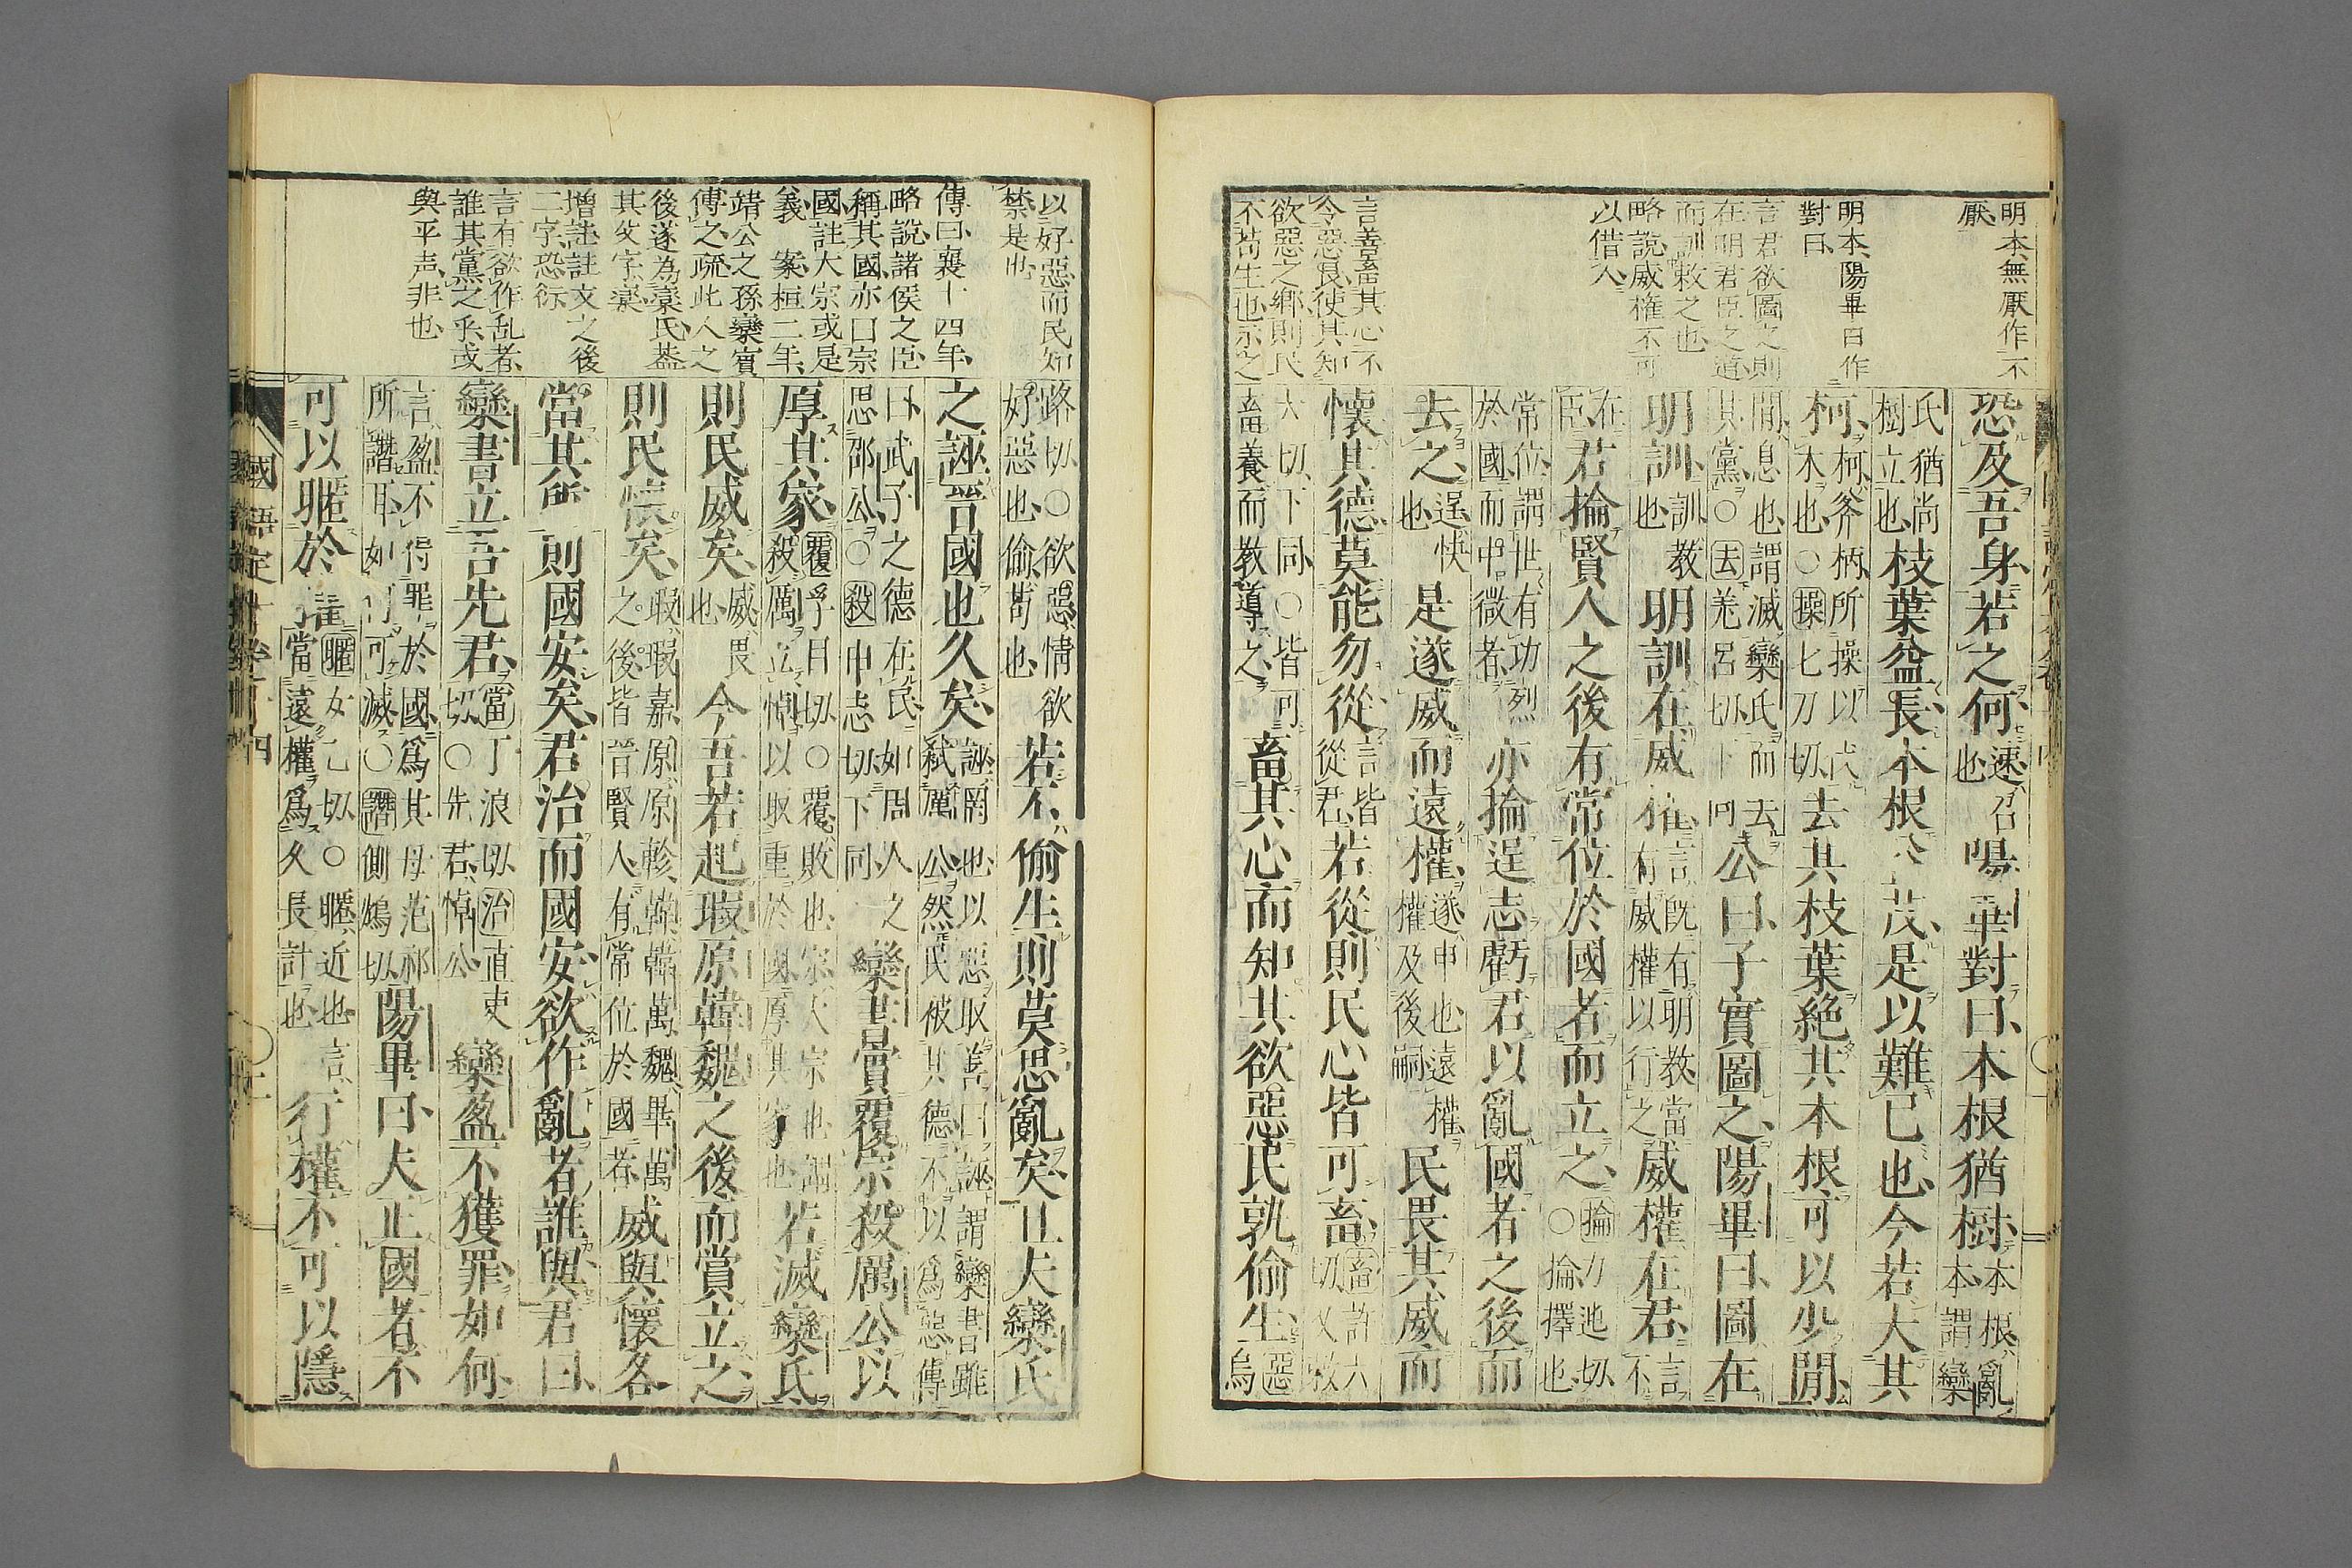 明本無厭作不
厭
明本陽畢曰作
對曰
言君欲圖之則
在明君臣之道
而訓敕之也
略説威權不可
以借人
言善畜其心不
令惡良使其知
欲惡之郷則民
不苟生也示之
恐及吾身若之何速召也陽畢對曰本根猶樹本根亂本謂欒
氏猶尚樹立也枝葉益長本根益茂是以難已也今若大其
柯柯斧柄所操以伐木也○操七刀切去其枝葉絶其本根可以少閒
閒息也謂滅欒氏而去其黨○去羌呂切下同公曰子實圖之陽畢曰圖在
明訓訓教也明訓在威權言既有明教當有威權以行之威權在君言不
在臣君掄賢人之後有常位於國者而立之掄力迍切○掄擇也
常位謂世有功烈於國而中微者亦掄逞志虧君以亂國者之後而
去之逞快也是遂威而遠權遂申也遠權權及後嗣民畏其威而
懷其德莫能勿從言皆從君若從則民心皆可畜畜許六切又敕
六切下同○皆可畜養而教導之畜其心而知其欲惡民孰偷生惡烏
以好惡而民知
禁是也
傳曰襄十四年
略説諸侯之臣
稱其國亦曰宗
國註大宗或是
義 案桓二年
靖公之孫欒賓
傅之疏此人之
後遂為欒氏葢
其父字欒
增註註文之後
二字恐衍
言有欲作乱者
誰其黨之乎或
與平声非也
路切○欲惡情欲好惡也偷苟也若不偷生則莫思亂矣且夫欒氏
之誣晉國也久矣誣罔也以惡取善曰誣謂欒書雖弑厲公然民被其德不以爲惡傳
曰武子之德在民如周人之思邵公○殺申志切下同欒書實覆宗殺厲公以
厚其家覆孚目切○覆敗也宗大宗也謂殺厲立悼以取重於國厚其家也若滅欒氏
則民威矣威畏也今吾若起瑕原韓魏之後而賞立之
則民懷矣瑕瑕嘉原原軫韓韓萬魏畢萬之後皆晉賢人有常位於國者威與懷各
當其所則國安矣君治而國安欲作亂者誰與君曰
欒書立吾先君當丁浪切治直吏切○先君悼公欒盈不獲罪如何
言盈不得罪於國爲其母范祁所譖耳如何可滅○譖側鴆切陽畢曰夫正國者不
可以暱於權暱女乙切○暱近也言當遠權爲久長計也行權不可以隱
國語定本卷十四